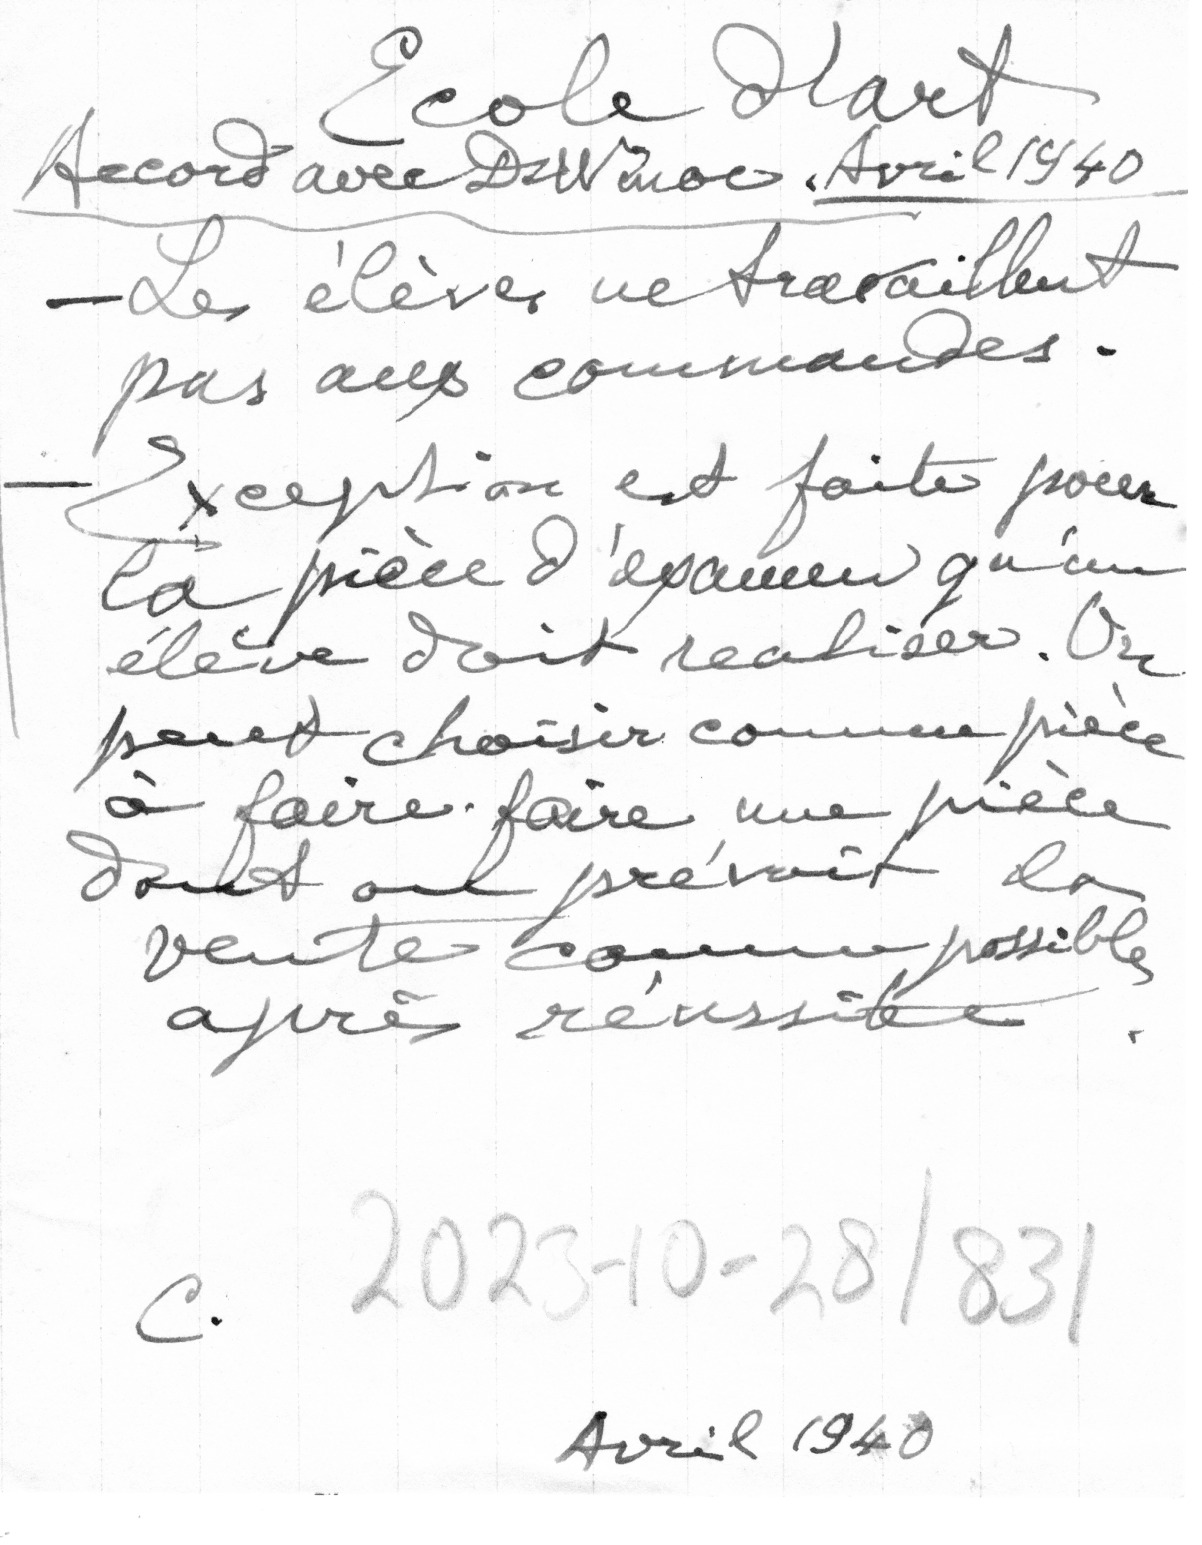 Ecole d'art
Accord avec Avril 1940
— Les élèves ne travaillent
pas aux commandes.
— Exception est faite pour
la pièce d'examen qu'un
élève doit realiser. On
peut choisir comme pièce
à faire faire une pièce
dont on prévoit la
vente comme possible
après réussite.
2023-10-28/831
C.
Avril 1940